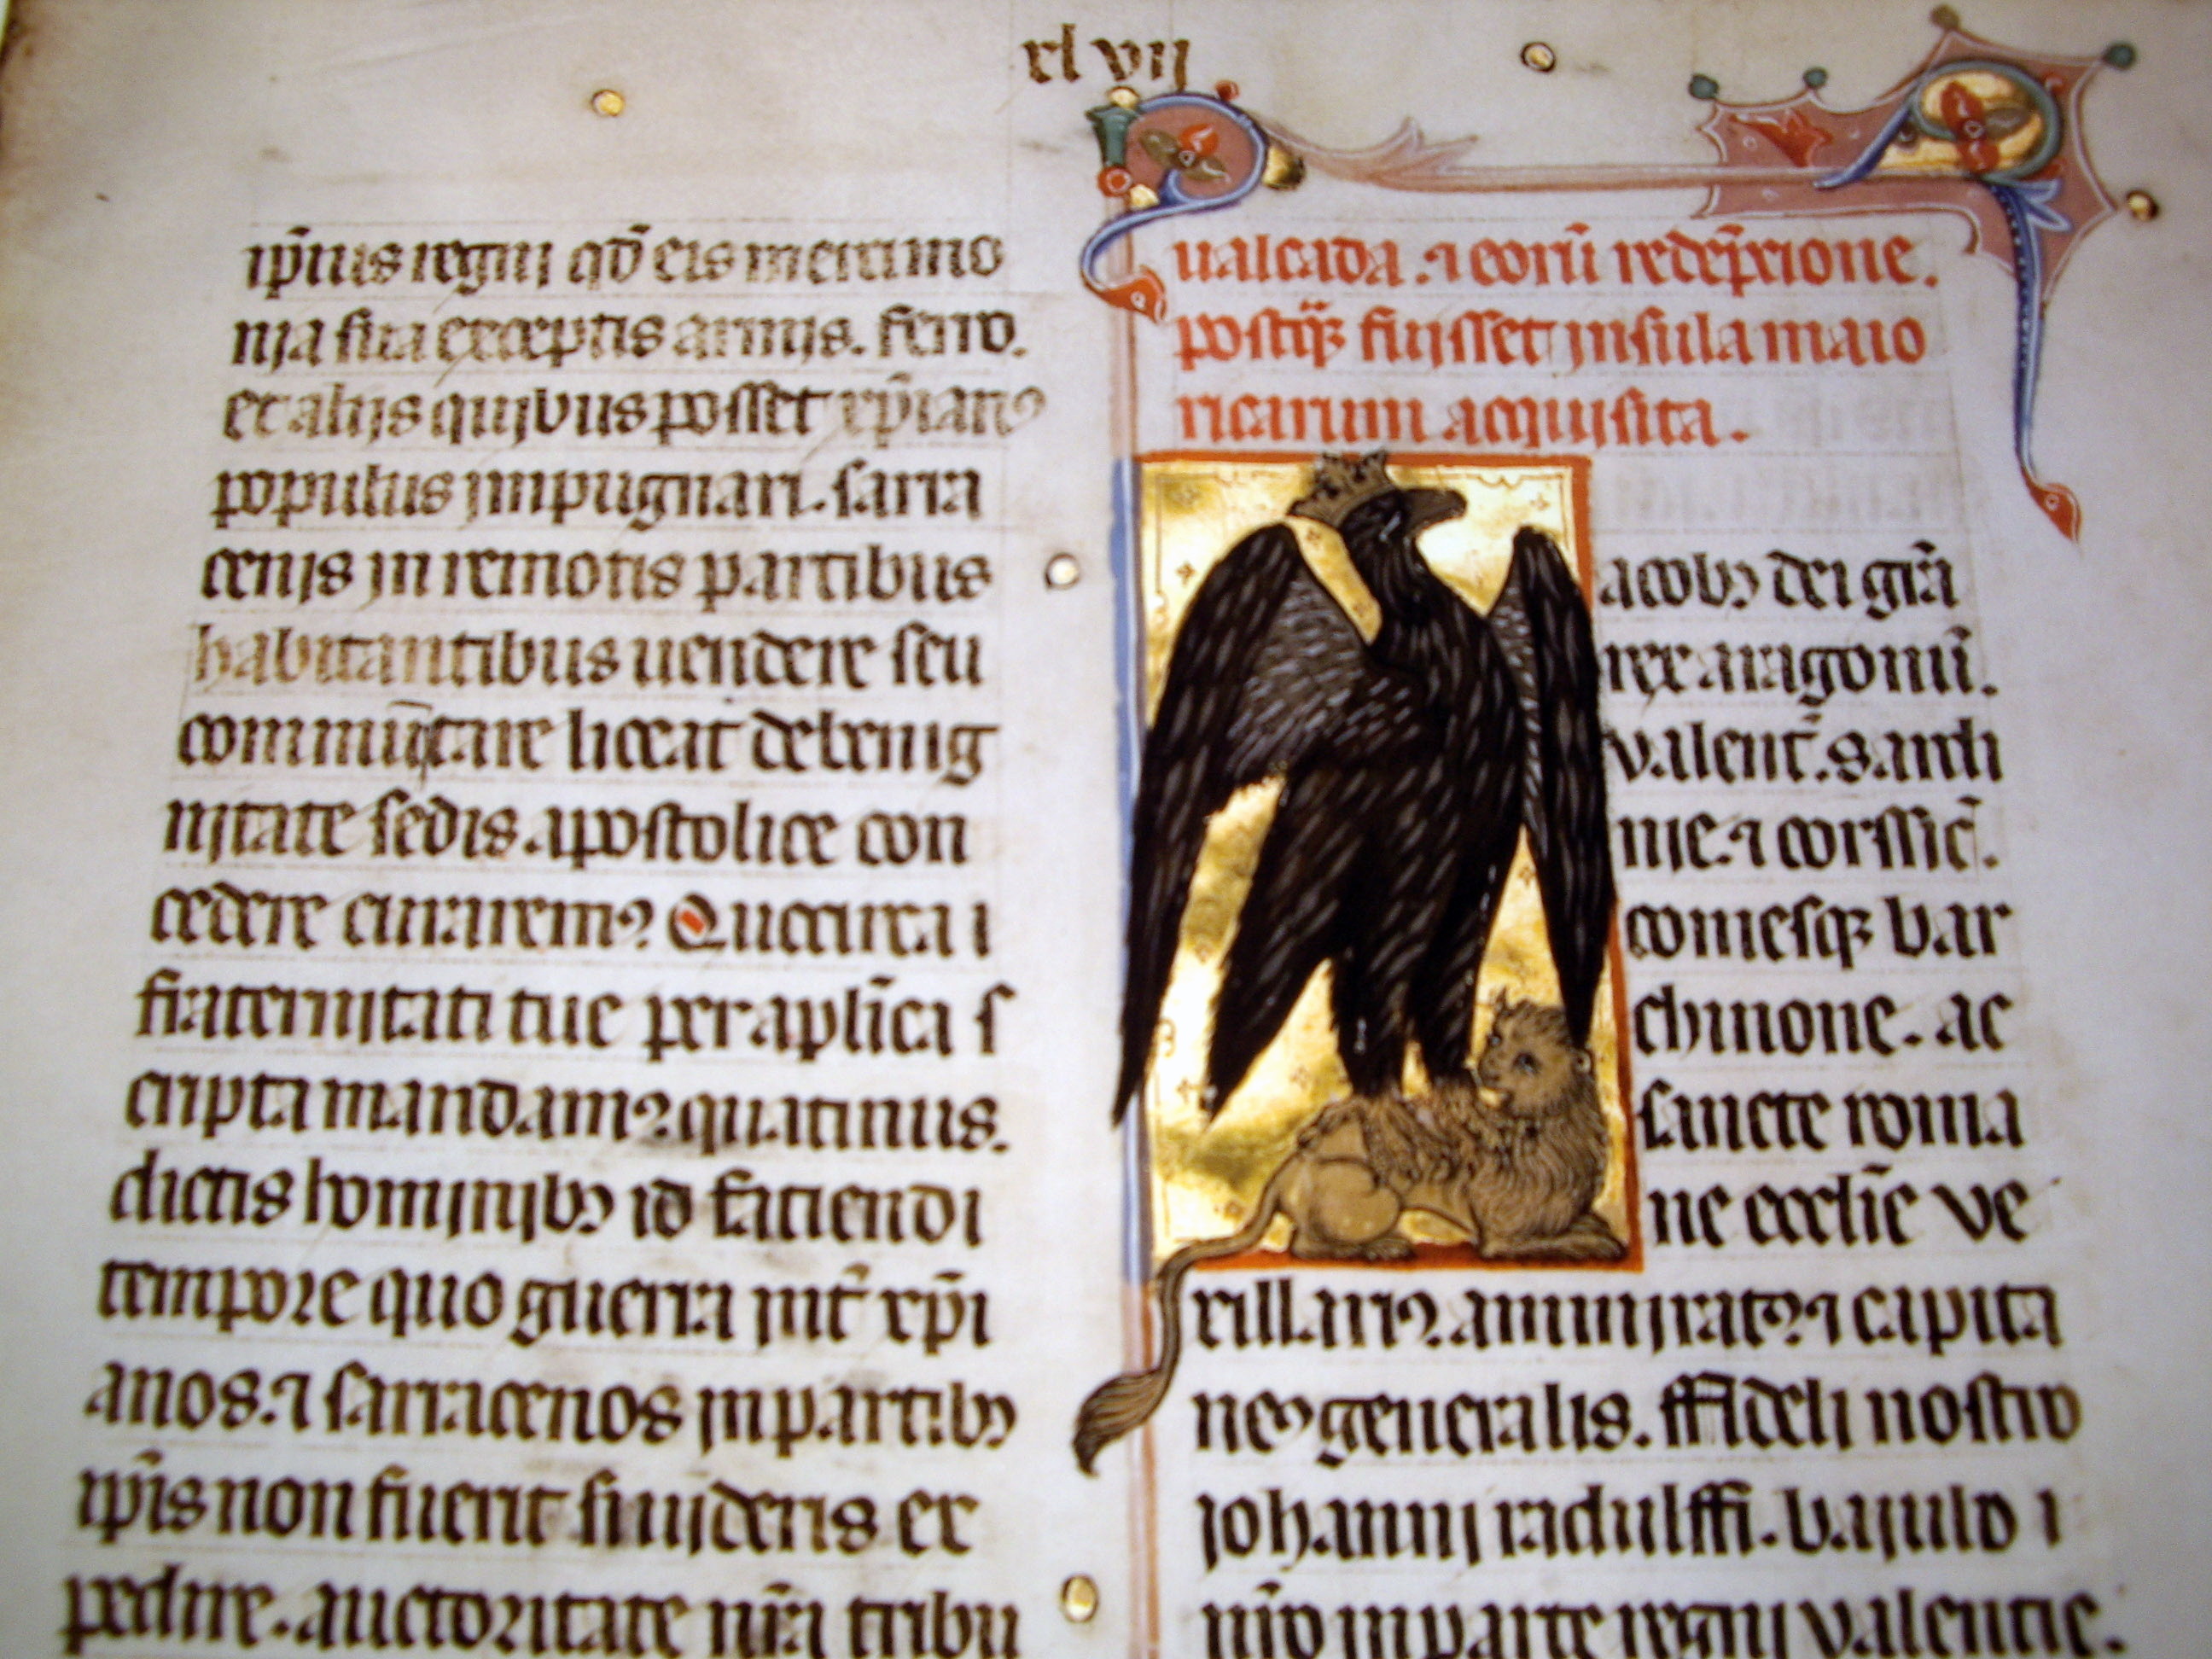 xlvij
ip̄ius regni qd̄ eis mercimo
nia sua exceptis armis. ferro.
et aliis quibus posset xp̄ianꝰ
populus impugnari. sarra
cenis in remotis partibus
habitantibus uendere seu
commūtare liceat de benig
nitate sedis apostolice con
cedere curaremꝰ Quocirca i
fraternitati tue per aplīca s
cripta mandamꝰ quatinus.
dictis hominibꝫ id faciendi
tempore quo guerra int̄ xp̄i
anos. ⁊ sarracenos in partibꝫ
ip̄is non fuerit siuideris ex
pedire. auctoritate nr̄a tribu
ualcada. ⁊ eorū redēp̄cione.
postq̄ꝫ fuisset insula maio
ricarum acquisita.
acobꝫ dei gr̄a
rex aragonū.
valent̄. Sardi
nie. ⁊ corssic̄.
comesqꝫ bar
chinone. ac
sancte roma
ne eccl̄ie ve
xillariꝰ. amiratꝰ ⁊ capita
neꝰ generalis. ffideli nostro
johanni radulffi. bajulo i
nr̄o in parte regni valentie.